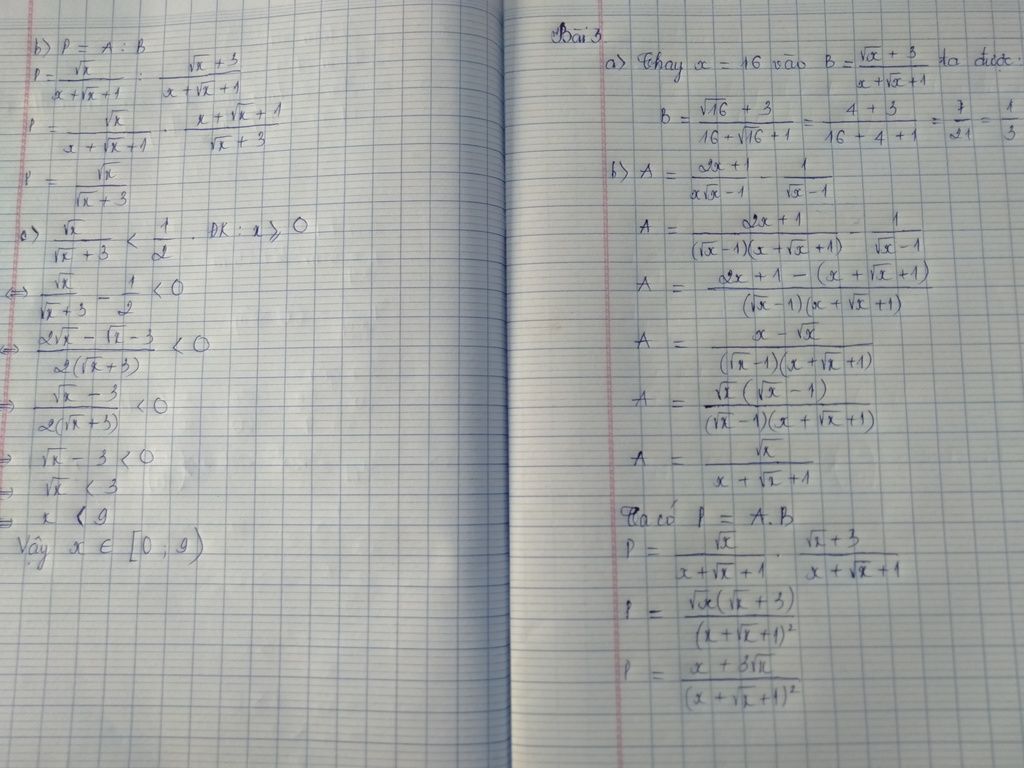 b) P = A : B
P = \frac{\sqrt{x}}{x+\sqrt{x}+1} : \frac{\sqrt{x}+3}{x+\sqrt{x}+1}
P = \frac{\sqrt{x}}{x+\sqrt{x}+1} . \frac{x+\sqrt{x}+1}{\sqrt{x}+3}
P = \frac{\sqrt{x}}{\sqrt{x}+3}
c) \frac{\sqrt{x}}{\sqrt{x}+3} < \frac{1}{2} . ĐK : x ⩾ 0
⇔ \frac{\sqrt{x}}{\sqrt{x}+3} - \frac{1}{2} < 0
⇔ \frac{2\sqrt{x}-\sqrt{x}-3}{2(\sqrt{x}+3)} < 0
⇒ \frac{\sqrt{x}-3}{2(\sqrt{x}+3)} < 0
⇒ \sqrt{x} - 3 < 0
⇒ \sqrt{x} < 3
⇒ x < 9
Vậy x ∈ [0 ; 9)
Bài 3
a) Thay x = 16 vào B = \frac{\sqrt{x}+3}{x+\sqrt{x}+1} ta được:
B = \frac{\sqrt{16}+3}{16+\sqrt{16}+1} = \frac{4+3}{16+4+1} = \frac{7}{21} = \frac{1}{3}
b) A = \frac{2x+1}{x\sqrt{x}-1} - \frac{1}{\sqrt{x}-1}
A = \frac{2x+1}{(\sqrt{x}-1)(x+\sqrt{x}+1)} - \frac{1}{\sqrt{x}-1}
A = \frac{2x+1-(x+\sqrt{x}+1)}{(\sqrt{x}-1)(x+\sqrt{x}+1)}
A = \frac{x-\sqrt{x}}{(\sqrt{x}-1)(x+\sqrt{x}+1)}
A = \frac{\sqrt{x}(\sqrt{x}-1)}{(\sqrt{x}-1)(x+\sqrt{x}+1)}
A = \frac{\sqrt{x}}{x+\sqrt{x}+1}
Ta có P = A.B
P = \frac{\sqrt{x}}{x+\sqrt{x}+1} . \frac{\sqrt{x}+3}{x+\sqrt{x}+1}
P = \frac{\sqrt{x}(\sqrt{x}+3)}{(x+\sqrt{x}+1)^2}
P = \frac{x+3\sqrt{x}}{(x+\sqrt{x}+1)^2}